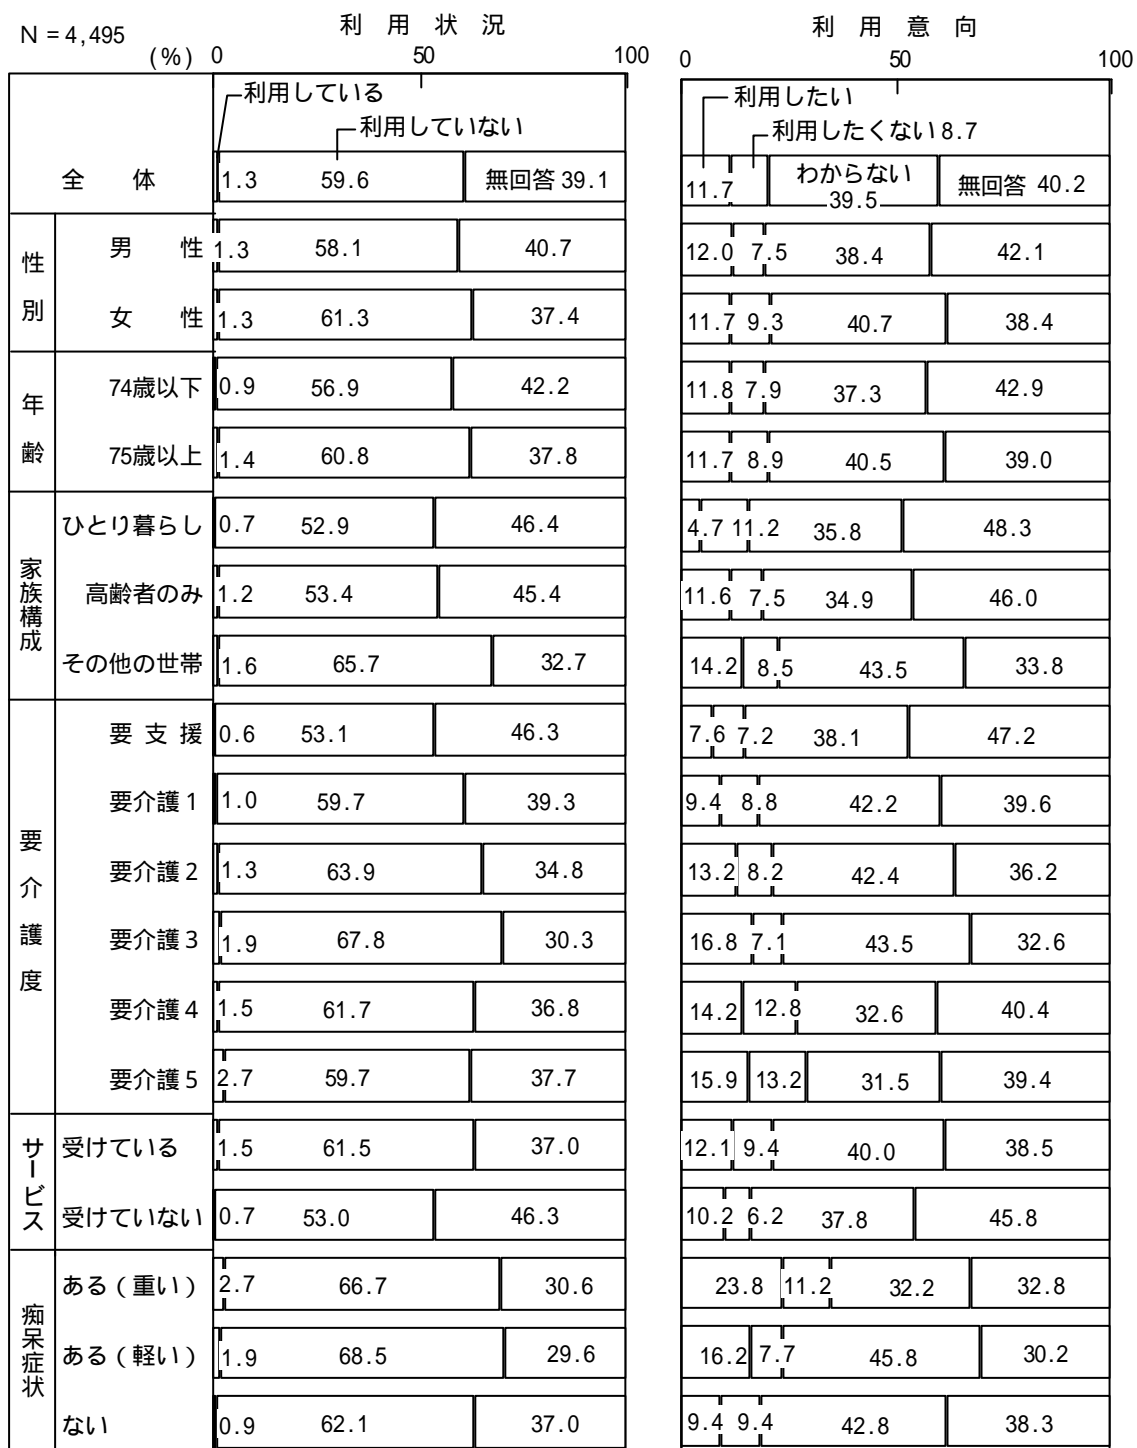 N = 4,495
利 用 状 況
利 用 意 向
(%) 0 50 100 0 50 100
利用している
利用していない
利用したい
利用したくない 8.7
全 体 1.3 59.6 無回答 39.1 11.7 わからない 39.5 無回答 40.2
性別
男 性 1.3 58.1 40.7 12.0 7.5 38.4 42.1
女 性 1.3 61.3 37.4 11.7 9.3 40.7 38.4
年齢
74歳以下 0.9 56.9 42.2 11.8 7.9 37.3 42.9
75歳以上 1.4 60.8 37.8 11.7 8.9 40.5 39.0
家族構成
ひとり暮らし 0.7 52.9 46.4 4.7 11.2 35.8 48.3
高齢者のみ 1.2 53.4 45.4 11.6 7.5 34.9 46.0
その他の世帯 1.6 65.7 32.7 14.2 8.5 43.5 33.8
要介護度
要 支 援 0.6 53.1 46.3 7.6 7.2 38.1 47.2
要介護1 1.0 59.7 39.3 9.4 8.8 42.2 39.6
要介護2 1.3 63.9 34.8 13.2 8.2 42.4 36.2
要介護3 1.9 67.8 30.3 16.8 7.1 43.5 32.6
要介護4 1.5 61.7 36.8 14.2 12.8 32.6 40.4
要介護5 2.7 59.7 37.7 15.9 13.2 31.5 39.4
サービス
受けている 1.5 61.5 37.0 12.1 9.4 40.0 38.5
受けていない 0.7 53.0 46.3 10.2 6.2 37.8 45.8
痴呆症状
ある(重い) 2.7 66.7 30.6 23.8 11.2 32.2 32.8
ある(軽い) 1.9 68.5 29.6 16.2 7.7 45.8 30.2
ない 0.9 62.1 37.0 9.4 9.4 42.8 38.3